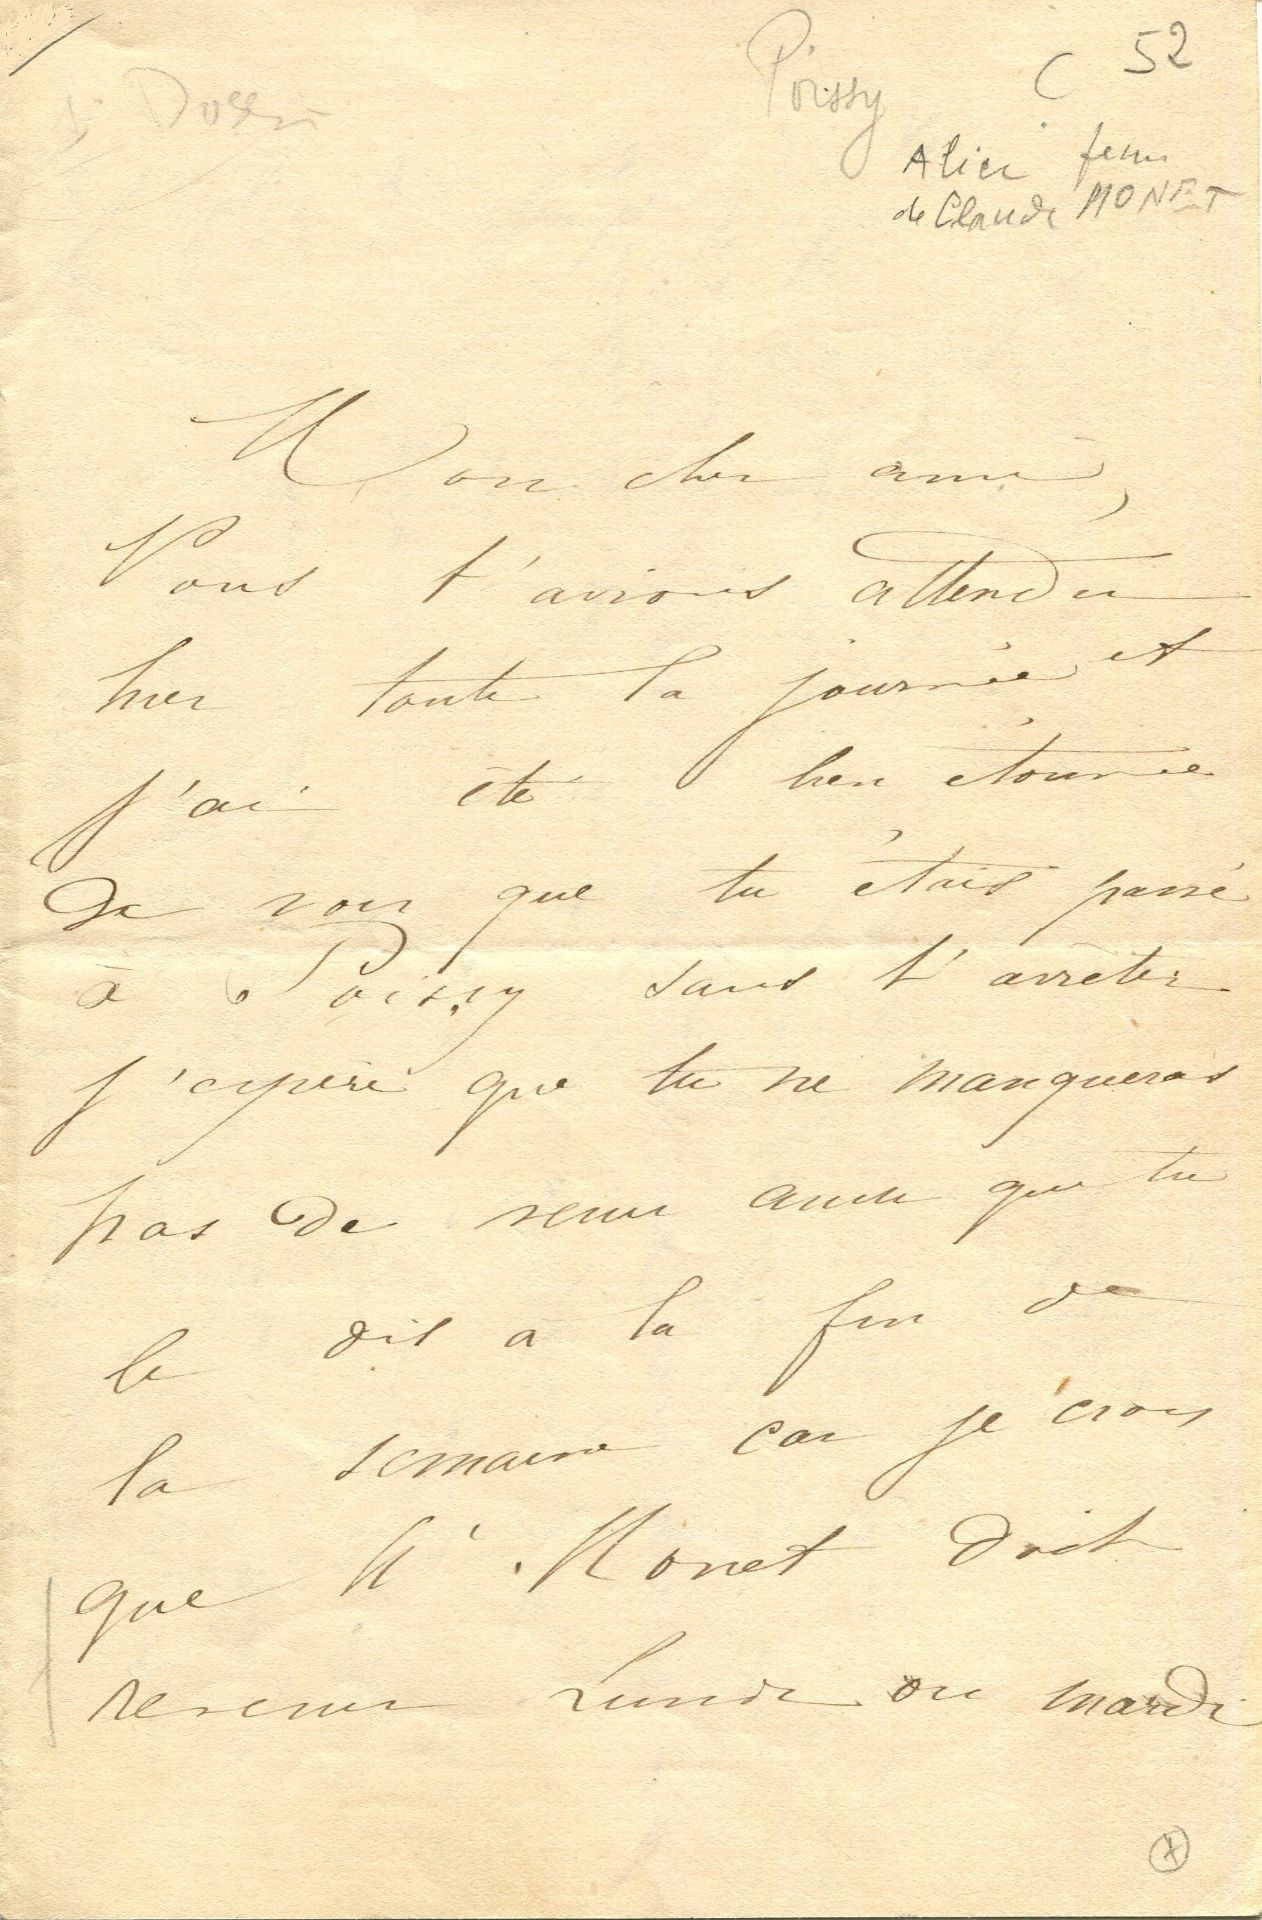 C 52
Poissy
Alice femme
de Claude MONET
Mon cher ami,
Nous t'avions attendu
hier toute la journée et
j'ai été bien étonnée
de voir que tu étais passé
à Poissy sans t'arrêter
j'espère que tu ne manqueras
pas de venir ainsi que tu
le dis à la fin de
la semaine car je crois
que Mr Monet doit
revenir Lundi ou mardi